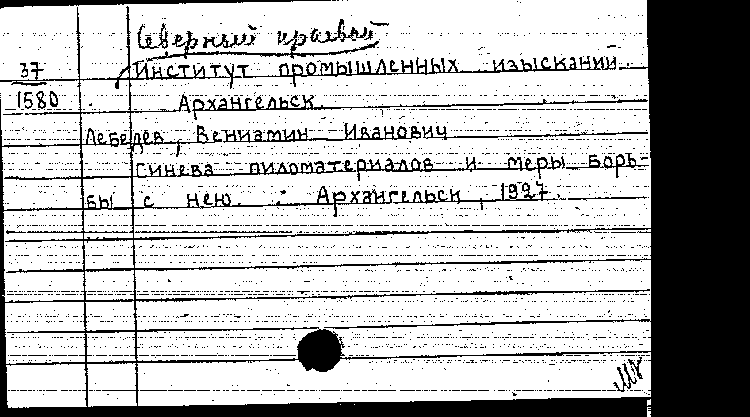 Северный краевой
37 Институт промышленных изысканий.
1580 Архангельск.
Лебедев, Вениамин Иванович
Синева пиломатериалов и меры борь-
бы с нею. : Архангельск, 1927.